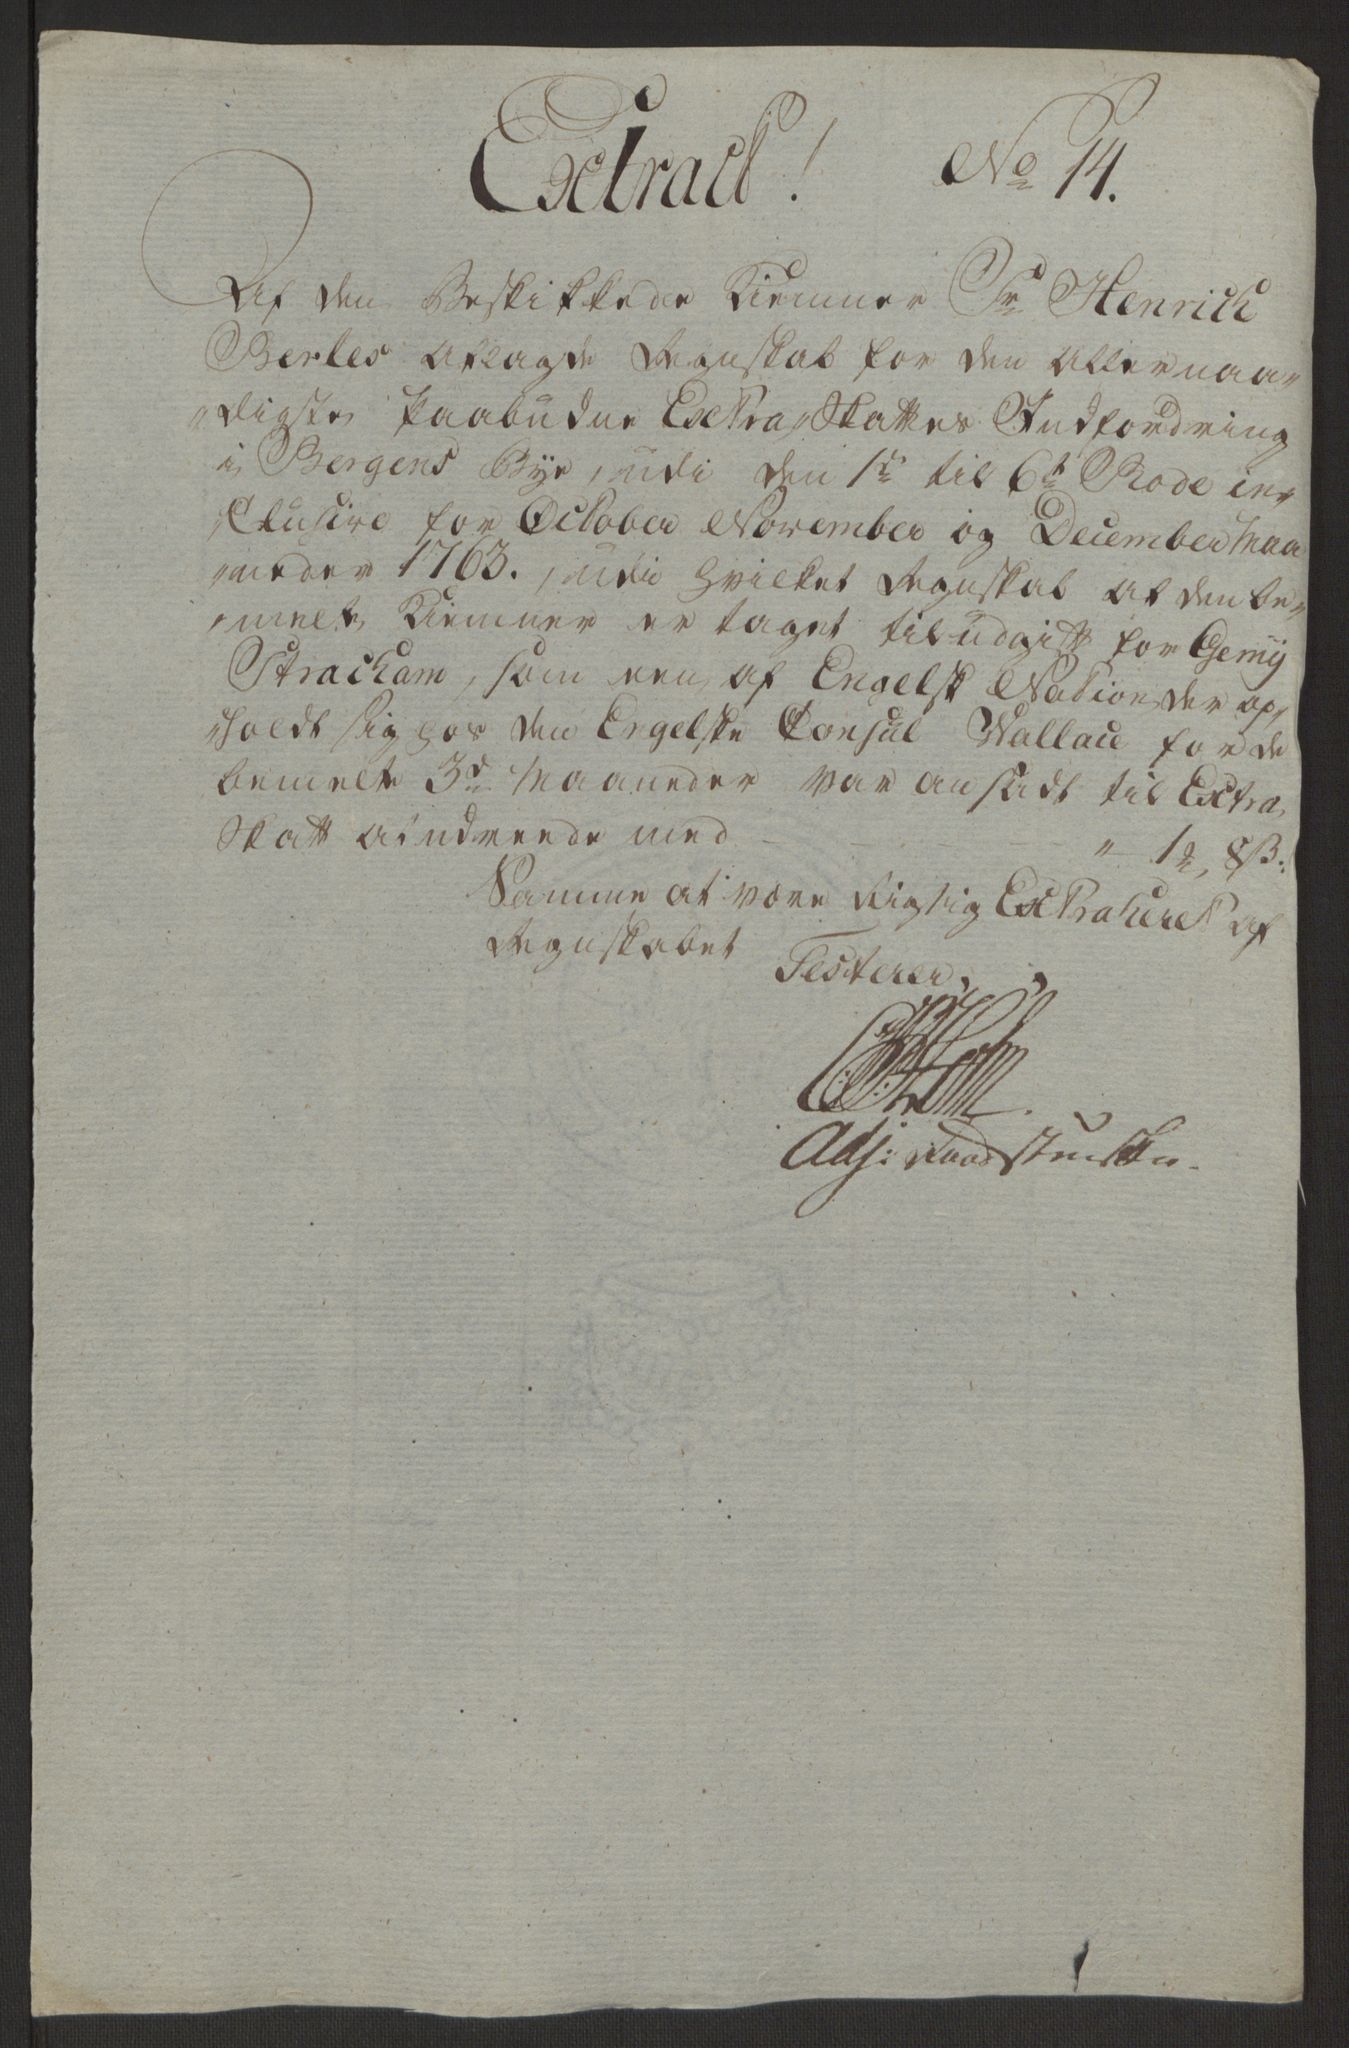 Extract! No 14.
Af den Beskikkede Kiemner Sr Henrich
Bertes aflagde Regnskab for den allernaa-
digste paabudne Extra Skattes Indfordring
i Bergens Bye, udi den 1te til 6te Rode in-
clusive for October November og December Maa
neder 1763. udi hvilket Regnskab af den be-
melte Kiemner er taget til udgift for Gemij
Stracham, som een af Engelsk Nation der op-
holdt sig hos den Engelske Konsul Wallace for de
bemelte 3de Maaneder var ansadt til Extra
Skatt alndreende med - - - - " - 1 2, 8 ß:
Samme at være Rigtig Extraheret af
Regnskabet
Testerer,
Holm
Adj: Raadstueskr.